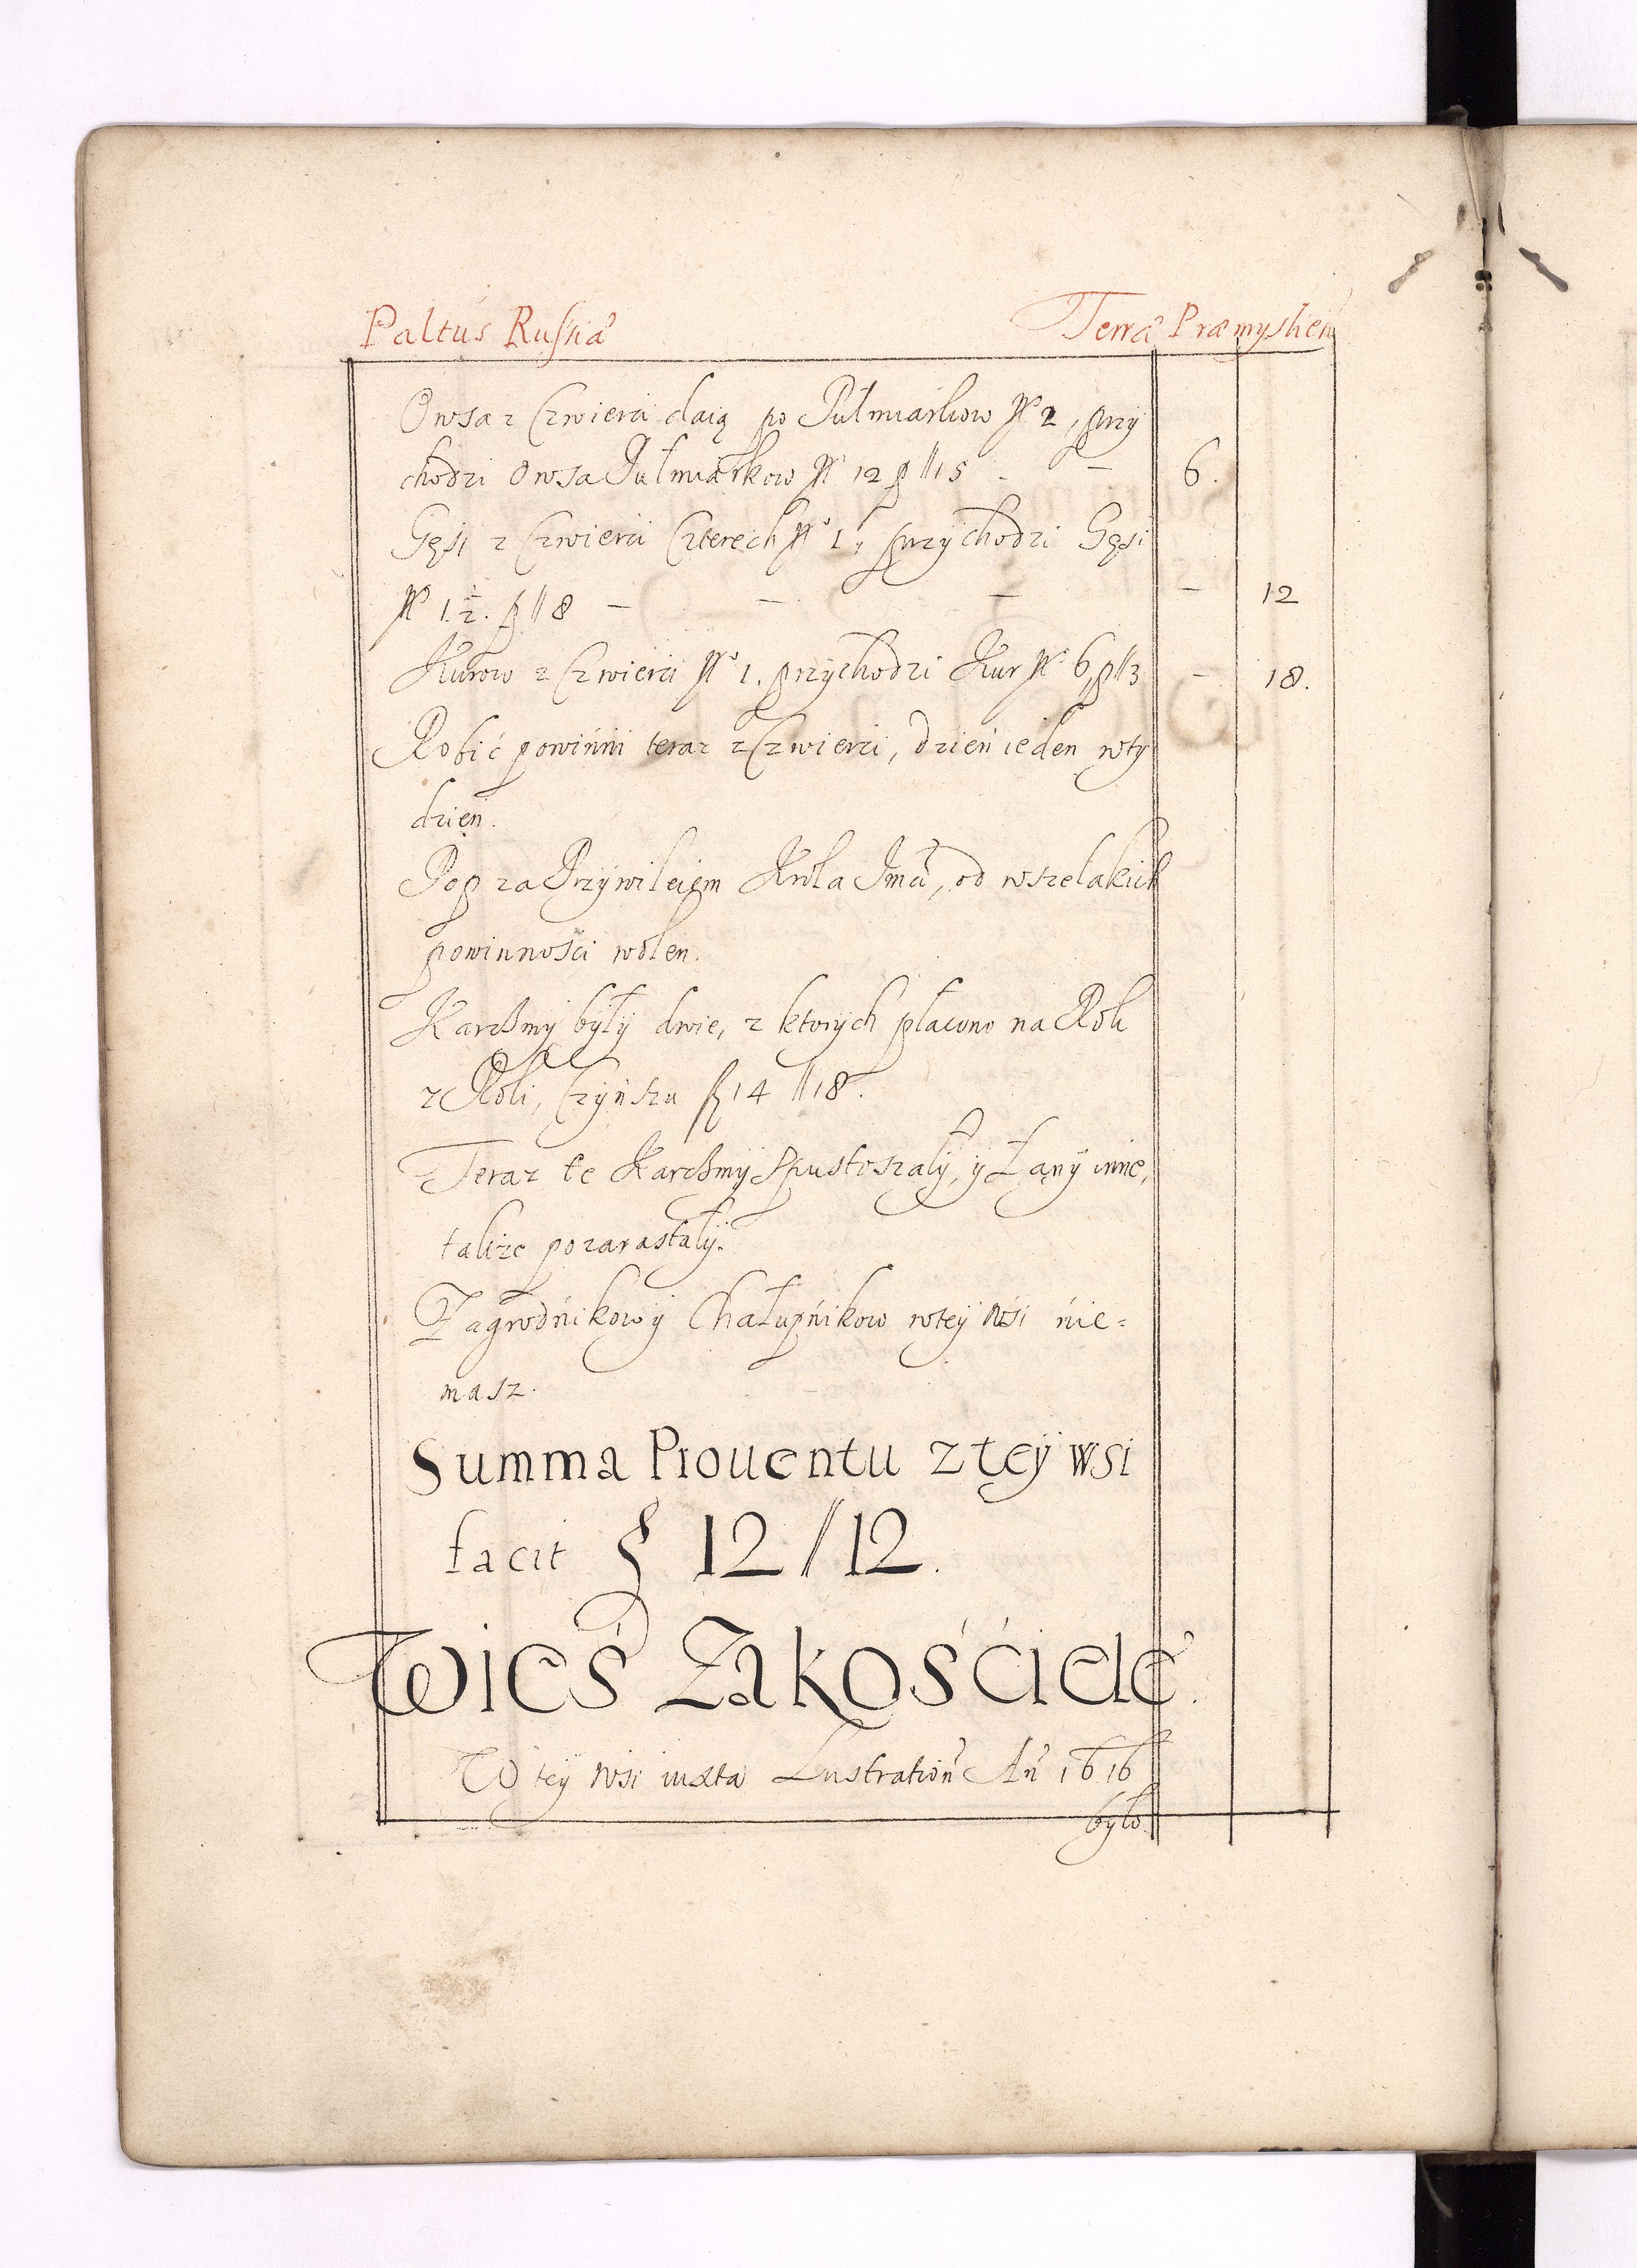 Paltus Russiæ Terræ Præmyslien
Owsa z Czwierci daią po Pułmiarkow N° 2, przy
chodzi Owsa Pułmiarkow N° 12 p // 15 - - 6.
Gęsi z Czwierci Czterech N° 1, przychodzi Gęsi
N° 1 1/2. p // 8 - - - - 12
Kurow z Czwierci N° 1. przychodzi Kur N° 6, p // 3 - 18.
Robić powinni teraz z Czwierci, dzień ieden wty
dzień.
Pop za Przywileiem Krola Jmći, od wszelakich
powinności wolen.
Karczmy były dwie, z ktorych płacono na Roli
z Roli, Czynszu f 14 // 18.
Teraz te Karczmy Spustoszały, y Łany inne,
takze pozarastały.
Zagrodnikow y Chałupnikow wtey wsi nie=
masz.
Summa Prouentu z tey wsi
facit f 12 // 12.
Wieś Zakościele.
W tey wsi iuxta Lustration An 1616
było